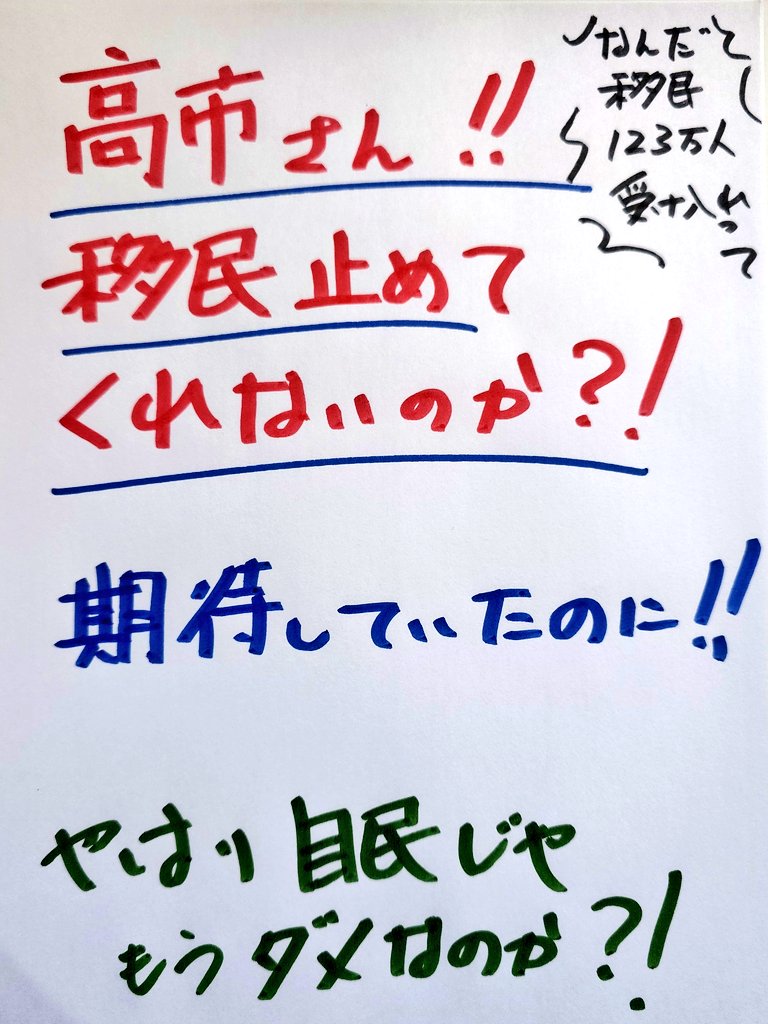 高市さん!!
なんだと
移民
123万人
受け入れ
って
移民止めて
くれないのか?!
期待していたのに!!
やはり自民じゃ
もうダメなのか?!